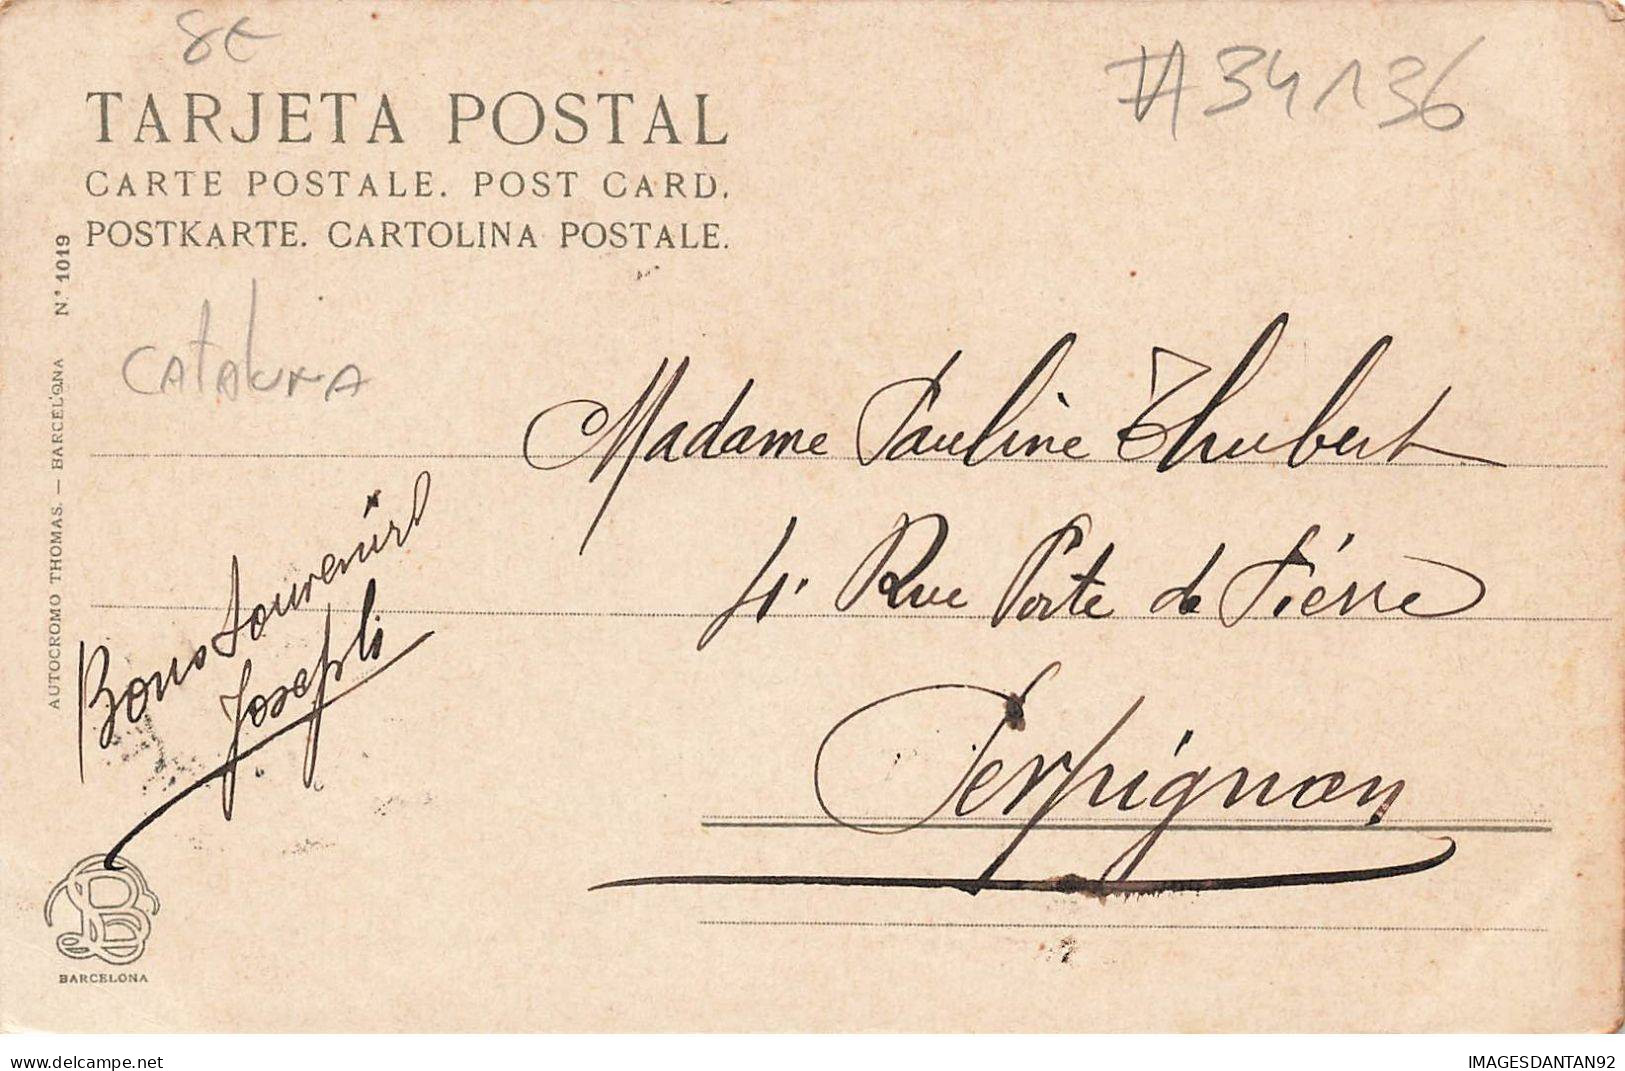 8€
#34136
TARJETA POSTAL
CARTE POSTALE. POST CARD.
POSTKARTE. CARTOLINA POSTALE.
AUTOCROMO THOMAS. — BARCELONA N.° 1019
CATALUNA
Madame Pauline Thubert
4. Rue Porte de Piérre
Perpignan
Bons Souvenirs
Joseph
BARCELONA
delcampe.net
IMAGESDANTAN92